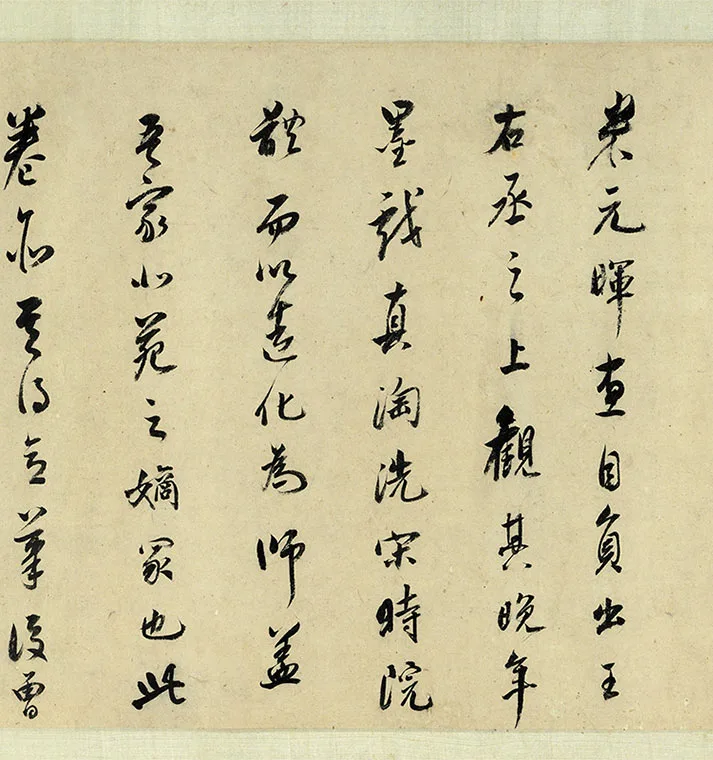 米元暉直自負出王
右丞之上觀其晚年
墨戲真淘洗宋時院
體而以造化為師蓋
吾家北苑之嫡冢也此
卷亦其得意筆後曹